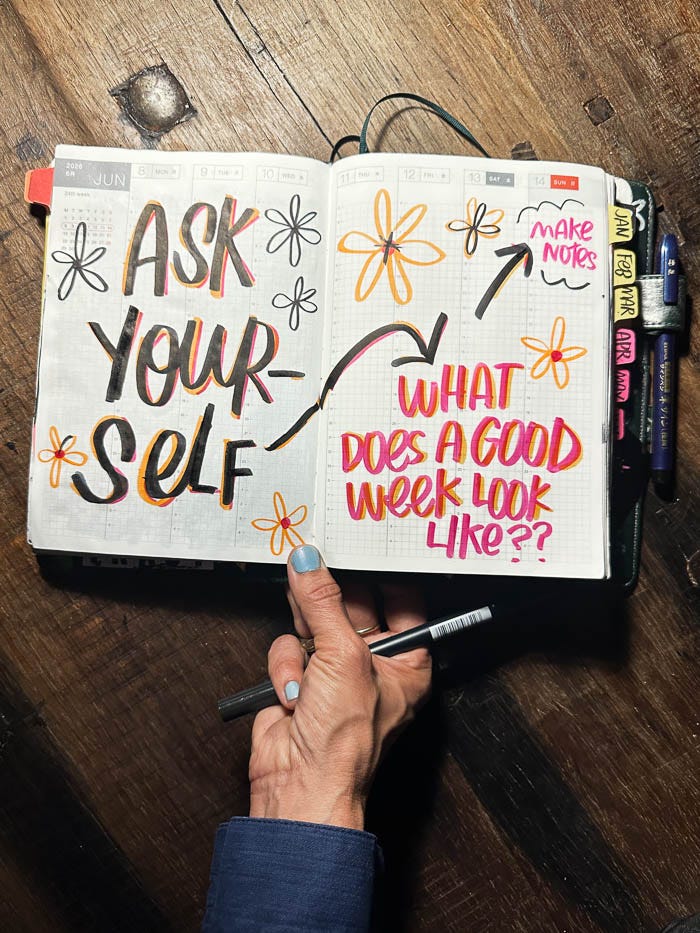 2026
6月
JUN
24th week
8 MON 月
9 TUE 火
10 WED 水
11 THU 木
12 FRI 金
13 SAT 土
14 SUN 日
ASK
YOUR-
SELF
MAKE
NOTES
WHAT
DOES A GOOD
WEEK LOOK
LIKE??
JAN
FEB
MAR
APR
MAY